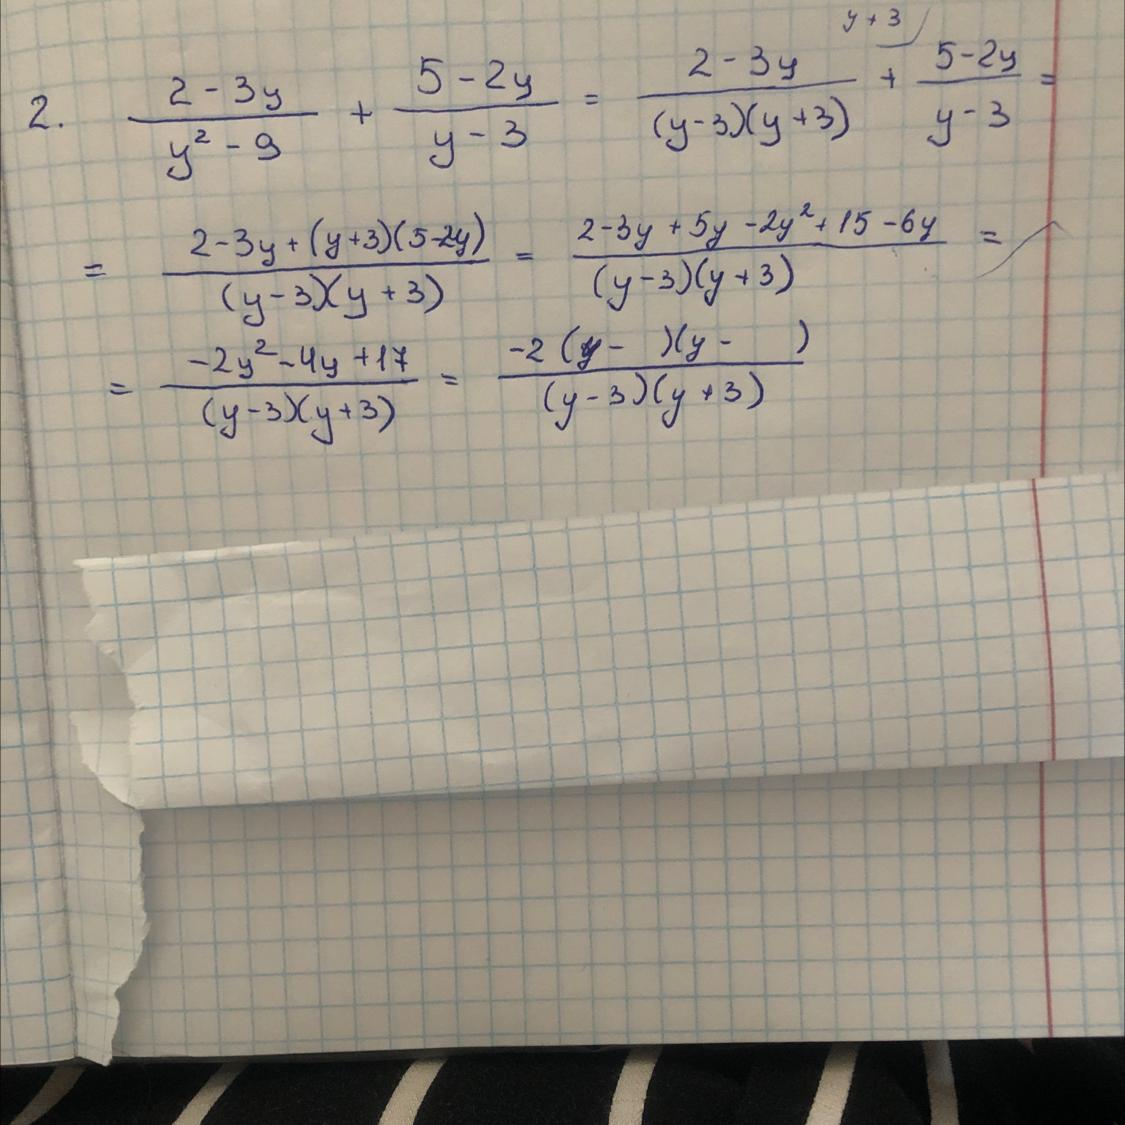 y + 3
2. (2 - 3y)/(y² - 9) + (5 - 2y)/(y - 3) = (2 - 3y)/((y - 3)(y + 3)) + (5 - 2y)/(y - 3) =
= (2 - 3y + (y + 3)(5 - 2y))/((y - 3)(y + 3)) = (2 - 3y + 5y - 2y² + 15 - 6y)/((y - 3)(y + 3)) =
= (-2y² - 4y + 17)/((y - 3)(y + 3)) = (-2 (y - )(y - ))/((y - 3)(y + 3))